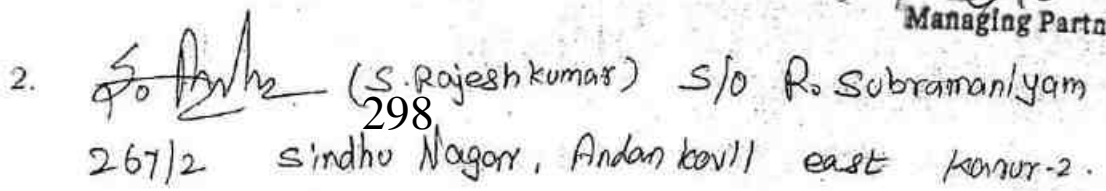 Managing Partn
2. (S. Rajeshkumar) S/o R. Subramaniyam
298
267/2 Sindhu Nagar, Andan kovil east Karur-2.